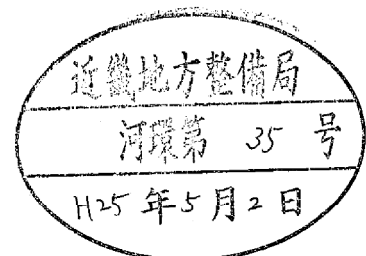 近畿地方整備局
河環第 35 号
H25 年 5 月 2 日